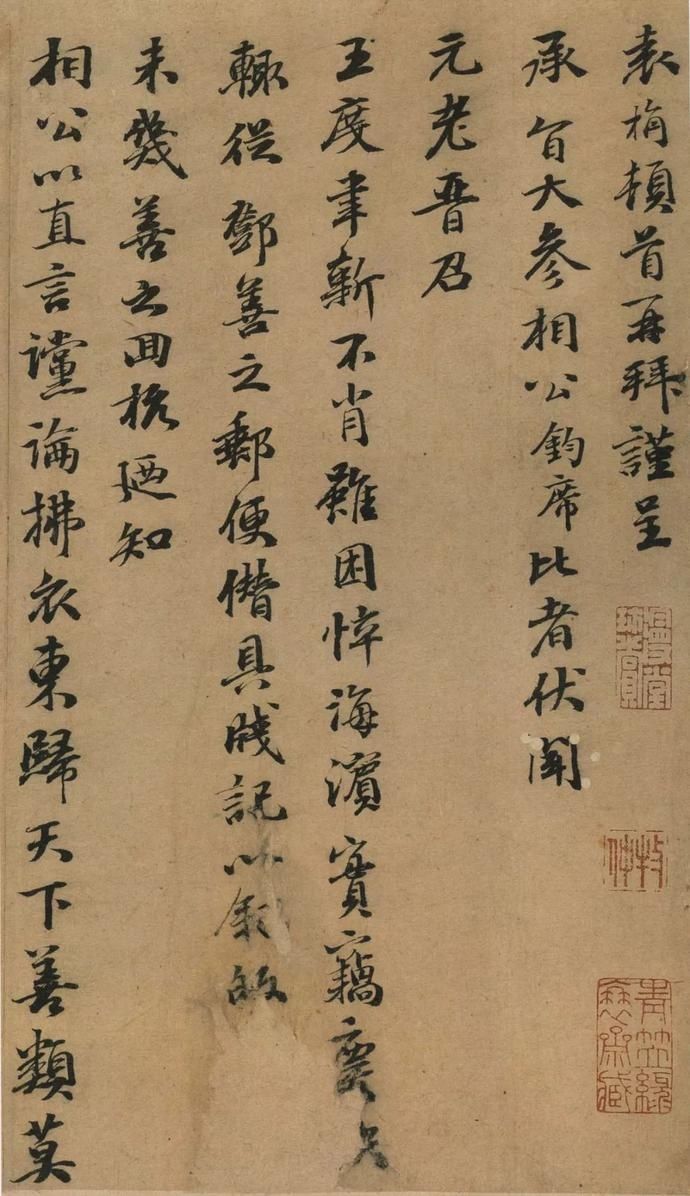 袁桷頓首再拜謹呈
承旨大參相公鈞席比者伏聞
元老晉召
王度聿新不肖雖困悴海濱實竊慶
輒從鄧善之郵便僭具牋記以敘
未幾善之回杭迺知
相公以直言讜論拂衣東歸天下善類莫
漫堂鑒賞
牧仲